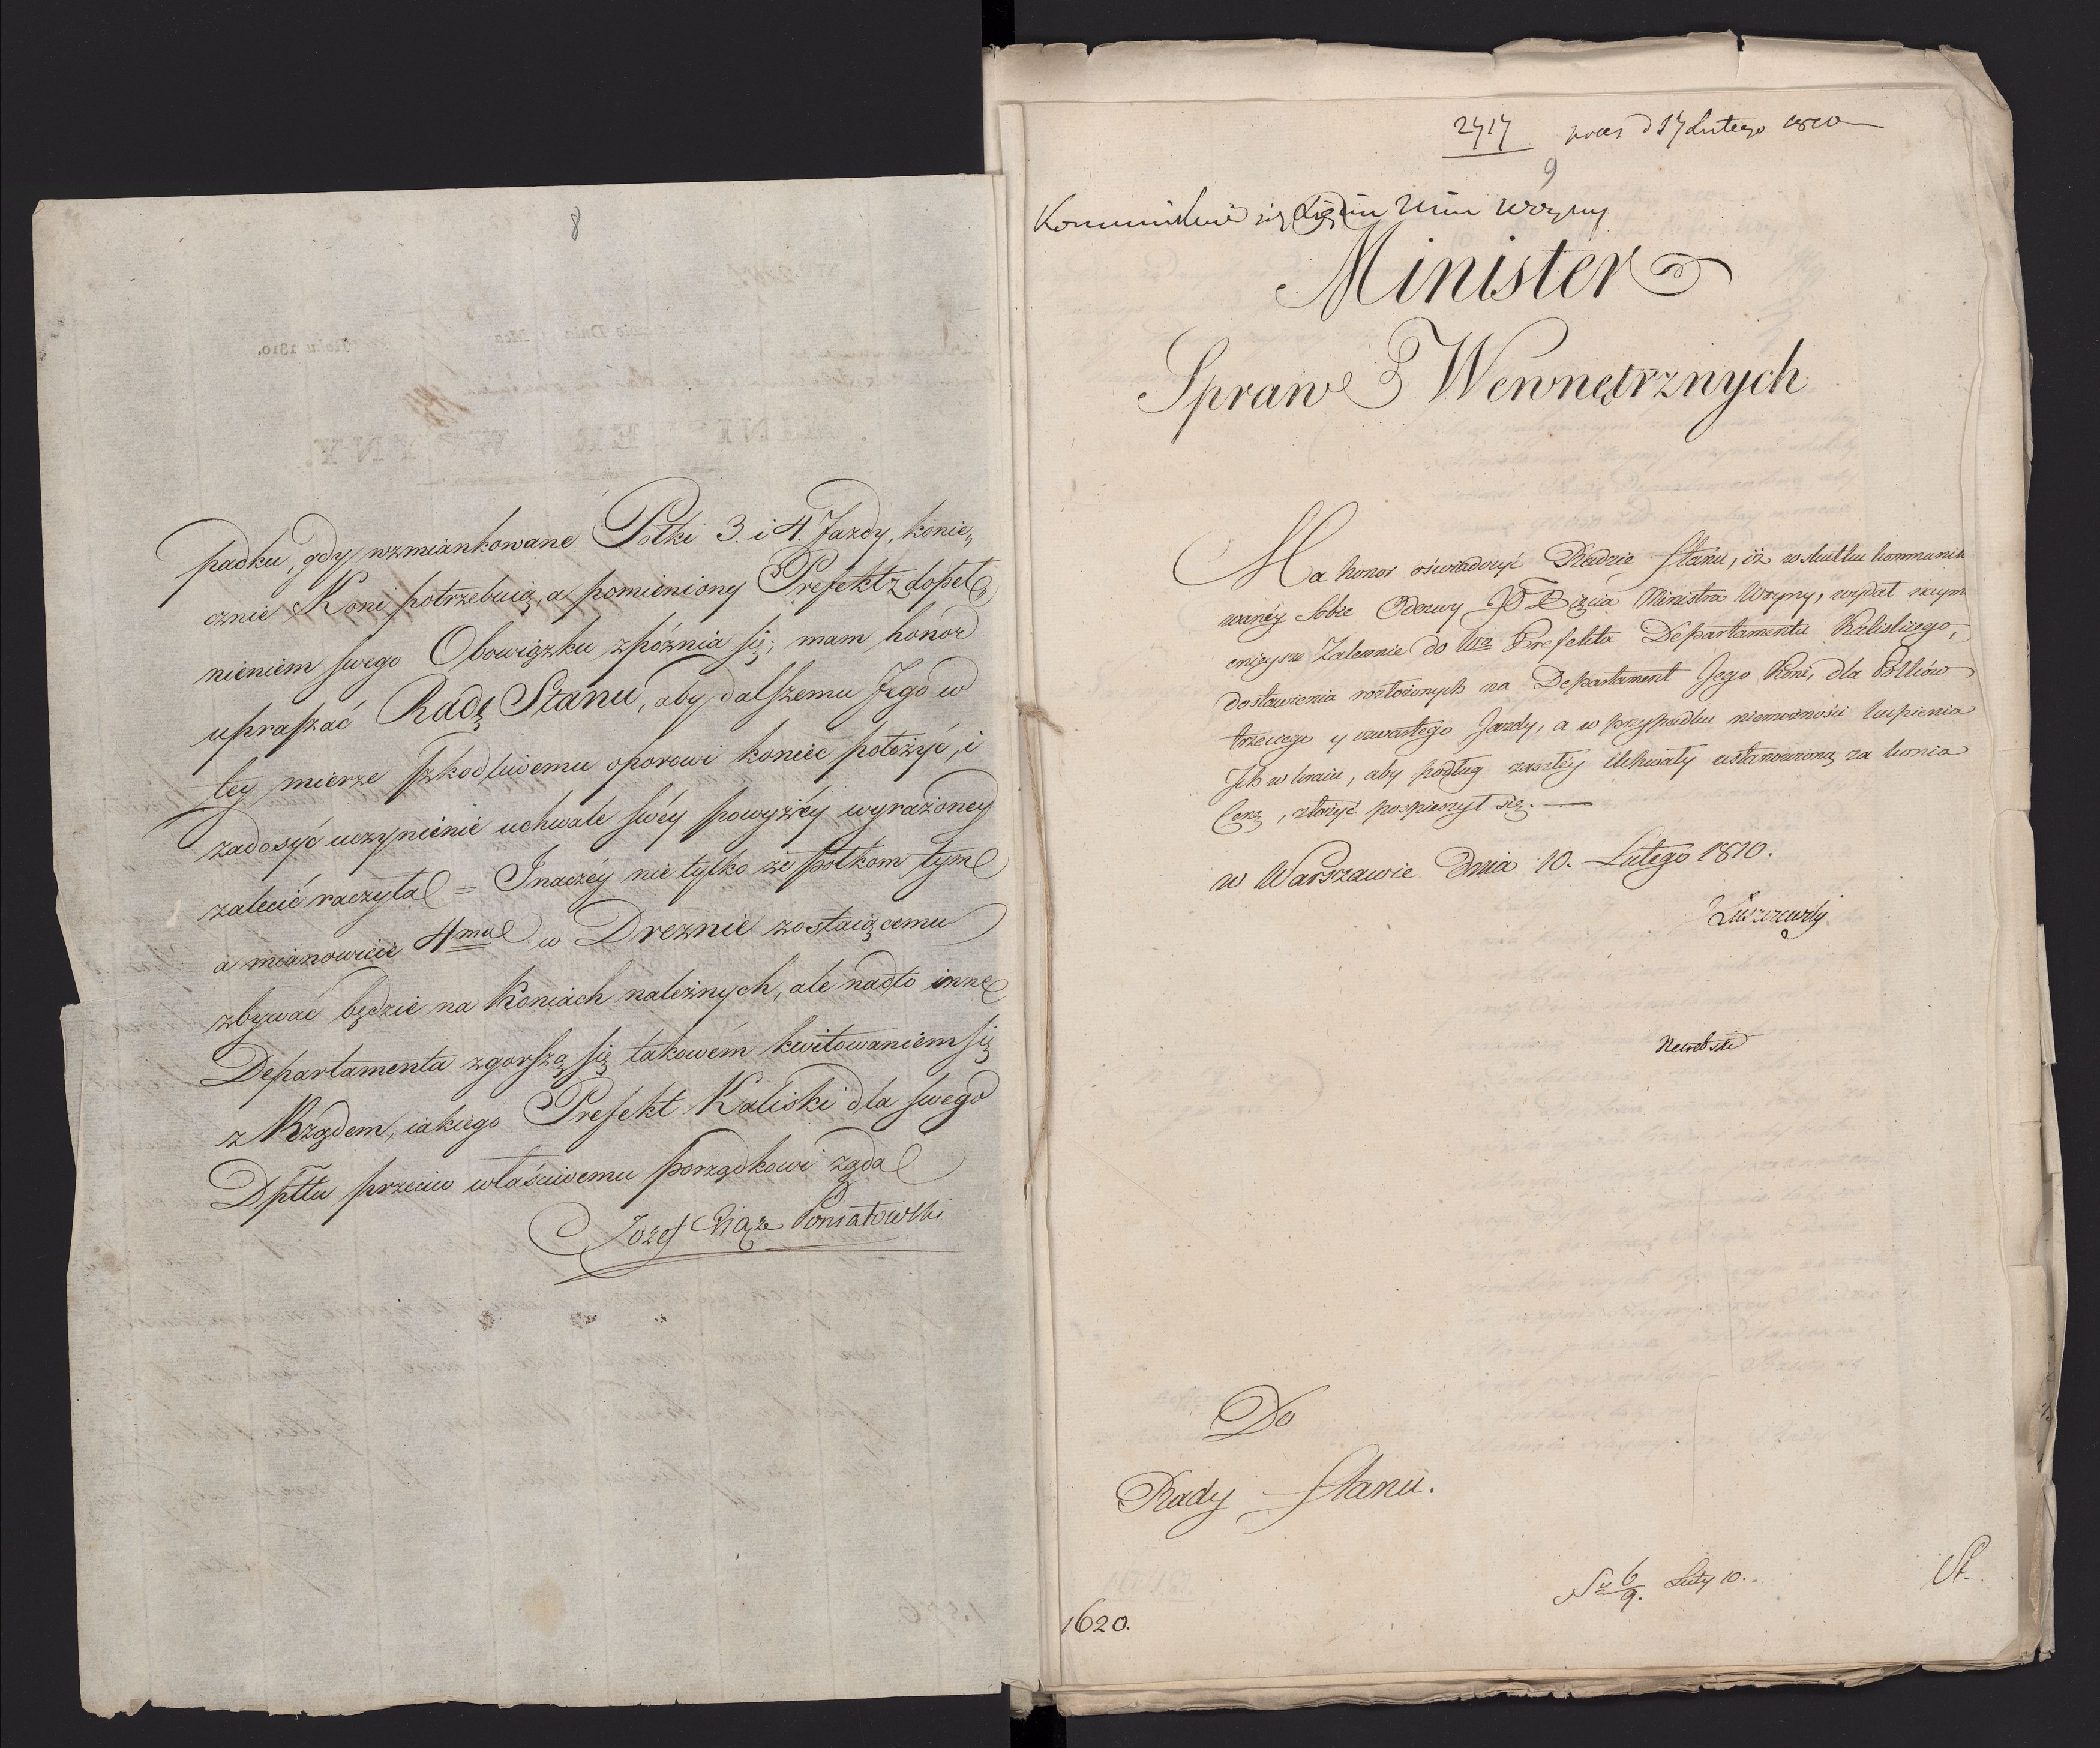 8
padku, gdy wzmiankowane Półki 3. i 4. Jazdy, konie„
cznie Koni potrzebuią, a pomieniony Prefekt z dopeł„
nieniem swego Obowiązku zpóźnia się; mam honor
upraszać Radę Stanu, aby dalszemu Jego w
tey mierze szkodliwemu oporowi koniec położyć, i
zadosyć uczynienie uchwale swéy powyżéy wyrażoney
zalecić raczyła = Inaczéy nie tylko że półkom tym
a mianowicie 4mu w Dreznie zostaiącemu
zbywać będzie na Koniach należnych, ale nadto inne
Departamenta zgorszą się takowém kwitowaniem się
z Rządem, iakiego Prefekt Kaliski dla swego
Dpttu przeciw właściwemu porządkowi żąda
Jozef Xiąże Poniatowski
2717 prаes d 17 Lutego 1810
9
Kommunikuie się Xięciu Min Woyny
Minister
Spraw Wewnętrznych
Ma honor oświadczyć Radzie Stanu, iż w skutku kommuniko
wanéy sobie Odezwy JO Xięcia Ministra Woyny, wydał naym
cnieysze Zalecenie do Wo Prefekta Departamentu Kaliskiego,
dostawienia rozłożonych na Departament Jego Koni, dla Półków
trzeciego y czwartego Jazdy, a w przypadku niemożności kupienia
Jch w kraiu, aby podług zaszłéy Uchwały ustanowioną za konia
Cenę, złożyć pospieszył się. —
w Warszawie Dnia 10. Lutego 1810.
Łuszczewski
Do
Rady Stanu.
Nr 6/9. Luty 10.
St.
1620.